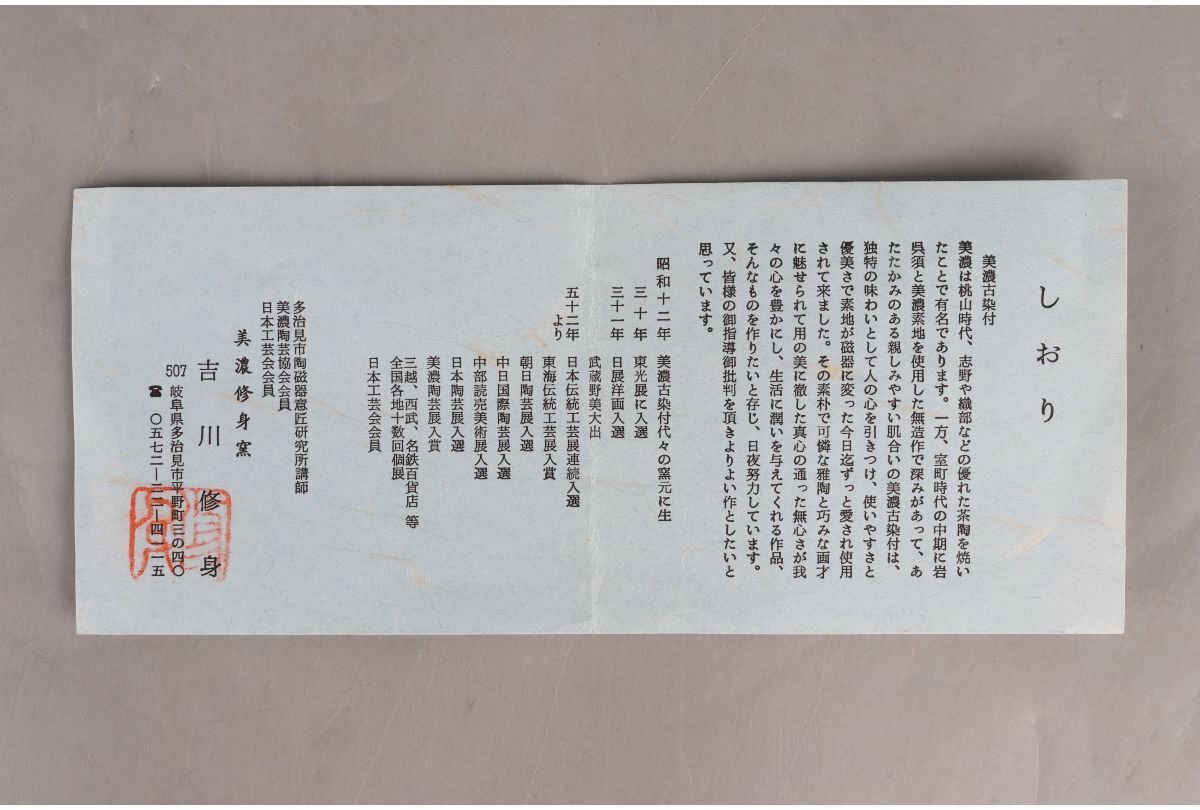 しおり
美濃古染付
美濃は桃山時代、志野や織部などの優れた茶陶を焼い
たことで有名であります。一方、室町時代の中期に岩
呉須と美濃素地を使用した無造作で深みがあって、あ
たたかみのある親しみやすい肌合いの美濃古染付は、
独特の味わいとして人の心を引きつけ、使いやすさと
優美さで素地が磁器に変った今日迄ずっと愛され使用
されて来ました。その素朴で可憐な雅陶と巧みな画才
に魅せられて用の美に徹した真心の通った無心さが我
々の心を豊かにし、生活に潤いを与えてくれる作品、
そんなものを作りたいと存じ、日夜努力しています。
又、皆様の御指導御批判を頂きよりよい作としたいと
思っています。
昭和十二年 美濃古染付代々の窯元に生
三十年 東光展に入選
三十一年 日展洋画入選
武蔵野美大出
五十二年より 日本伝統工芸展連続入選
東海伝統工芸展入賞
朝日陶芸展入選
中日国際陶芸展入選
中部読売美術展入選
日本陶芸展入選
美濃陶芸展入賞
三越、西武、名鉄百貨店 等
全国各地十数回個展
日本工芸会会員
多治見市陶磁器意匠研究所講師
美濃陶芸協会会員
日本工芸会会員
美濃修身窯
吉川修身
507 岐阜県多治見市平野町三の四〇
☎ 〇五七二ー二二ー四一一五